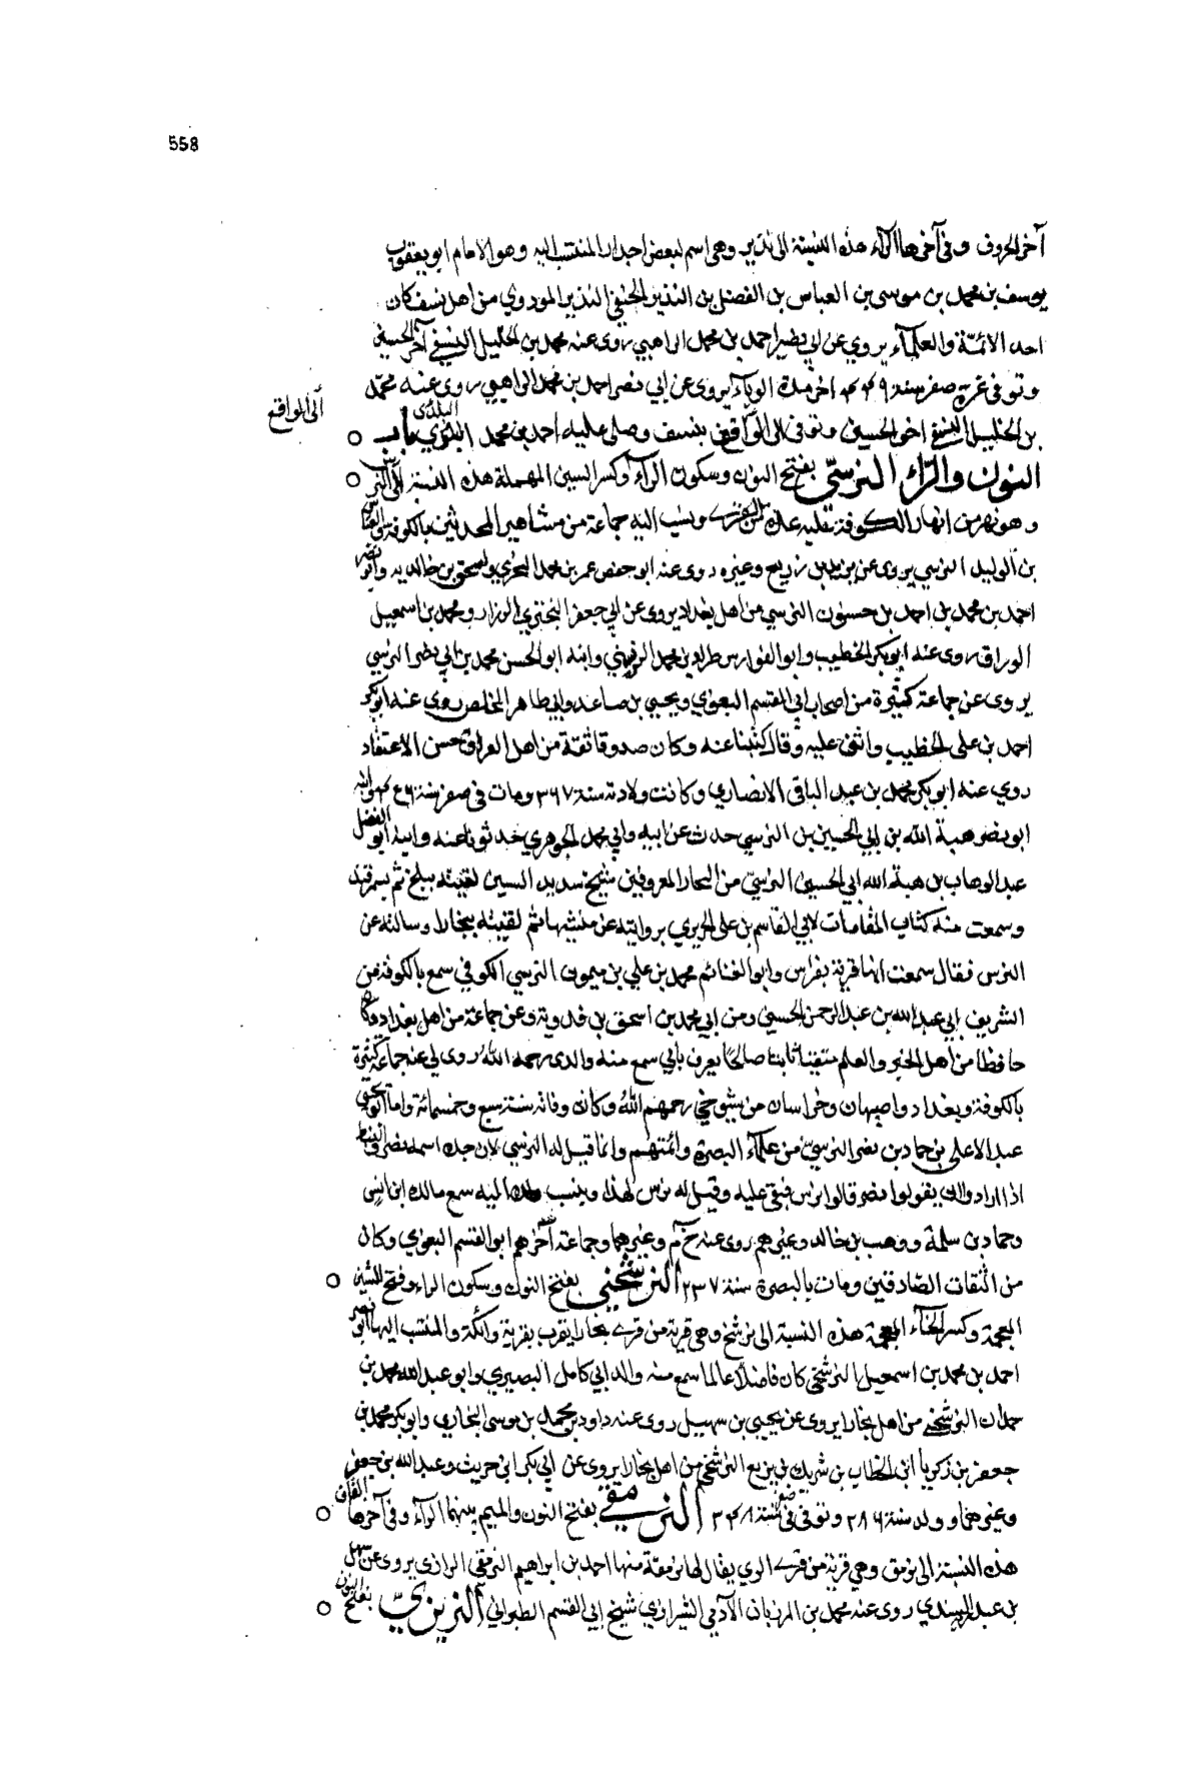 558
آخر الحروف وفى آخرها الراء هذه النسبة الى نذير وهى اسم لبعض اجداد المنتسب اليه وهو الامام ابو يعقوب
يوسف بن محمد بن موسى بن العباس بن الفضل بن النذير الحنفى النذيرى المودوي من اهل نسف كان
احد الائمة والعلماء يروي عن ابي نصر احمد بن محمد الراهبي روى عنه محمد بن الخليل النسفي آخر الحسين
وتوفى غرة صفر سنة ٤٤٩ آخر مدة الوباء يروى عن ابي نصر احمد بن محمد الراهبي روى عنه محمد
بن الخليل النسفي اخو الحسين وتوفى الى الواقعى بنسف وصلى عليه احمد بن محمد البلدى باب
الى الواقع
النون والراء النرسى بفتح النون وسكون الراء وكسر السين المهملة هذه النسبة الى النرس
وهو نهر من انهار الكوفة عليه عدة من القرى وينسب اليه جماعة من مشاهير المحدثين بالكوفة العباس
بن الوليد النرسي يروى عن يزيد بن زريع وغيره روى عنه ابو حفص عمر بن محمد البحري واسحق بن خالد به وابو نصر
احمد بن محمد بن احمد بن حسنون النرسي من اهل بغداد يروى عن ابي جعفر البختري الرزاز ومحمد بن اسمعيل
الوراق روى عنه ابو بكر الخطيب وابو الفوارس طراد بن محمد الزينبي وابنه ابو الحسن محمد بن ابي نصر النرسي
يروى عن جماعة كثيرة من اصحاب ابى القسم البغوي ويحيى بن صاعد وابي طاهر المخلص روى عنه ابو بكر
احمد بن على الخطيب واثنى عليه وقال كتبنا عنه وكان صدوقا ثقة من اهل القرآن حسن الاعتقاد
روي عنه ابو بكر محمد بن عبد الباقى الانصاري وكانت ولادته سنة ٣٦٧ ومات فى صفر سنة
ابو نصر هبة الله بن ابي الحسين بن النرسي حدث عن ابيه وابي محمد الجوهري حدثونا عنه وابنه ابو الفضل
عبد الوهاب بن هبة الله ابي الحسين النرسي من التجار المعروفين شيخ سديد السيرة لقيته ببلخ ثم بسمرقند
وسمعت منه كتاب المقامات لابي القاسم بن على الحريري بروايته عن منشيها ثم لقيته ببخارا وسالته عن
النرس فقال سمعت انها قرية بفارس وابو الغنائم محمد بن علي بن ميمون النرسي الكوفي سمع بالكوفة من
الشريف ابي عبد الله بن عبد الرحمن الحسني ومن ابي محمد بن اسحق بن فدوية وعن جماعة من اهل بغداد وكان
حافظا من اهل الخير والعلم متقنا ثابتا صالحا يعرف بابي سمع منه والدى رحمه الله روى لي عنه جماعة كثيرة
بالكوفة وبغداد واصبهان وخراسان من شيوخي رحمهم الله وكان وفاته سنة سبع وخمسمائة واما ابو يحيى
عبد الاعلى بن حماد بن نصر النرسي من علماء البصرة وائمتهم وانما قيل له النرسي لان جده اسمه نصر والنبط
اذا ارادوا ان يقولوا نصر قالوا نرس فبقى عليه وقيل له نرس لهذا وينسب ولده اليه سمع مالك ابن انس
وحماد بن سلمة ووهب بن خالد وغيرهم روى عنه خ م وغيرهما وجماعة آخرهم ابو القسم البغوي وكان
من الثقات الصادقين ومات بالبصرة سنة ٢٣٧ النرشخى بفتح النون وسكون الراء وفتح الشين
المعجمة وكسر الخاء المعجمة هذه النسبة الى نرشخ وهى قرية من قرى بخارا يقرب بقرية وابكنة والمنتسب اليها ابو نصر
احمد بن محمد بن اسمعيل النرشخى كان فاضلا عالما سمع منه والد ابي كامل البصيري وابو عبد الله محمد بن
حمدان النرشخي من اهل بخارا يروى عن يحيى بن سهيل روى عنه داود بن محمد بن موسى البخاري وابو بكر محمد بن
جعفر بن زكريا ابن الخطاب بن شريك بن يزيع النرشخي من اهل بخارا يروى عن ابي بكر ابن حريث وعبد الله بن جعفر
وغيرهما وولد سنة ٢٨٦ وتوفى فى صفر سنة ٣٤٨ النرمقي بفتح النون والميم بينهما الراء وفى آخرها القاف
هذه النسبة الى نرمق وهي قرية من قرى الري يقال لها نرمة منها احمد بن ابراهيم النرمقى الرازى يروى عن سهل
بن عبد ربه السندي روى عنه محمد بن المرزبان الآدمي الشيرازي شيخ ابي القسم الطبراني النريزي بفتح النون